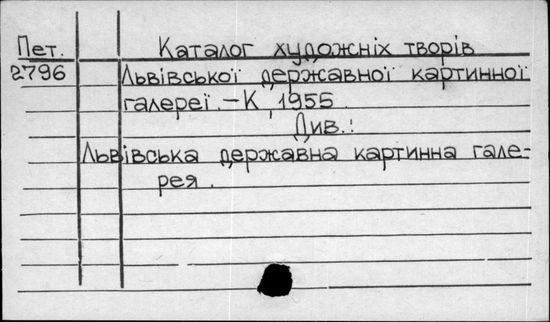 Пет. Каталог художніх творів
2796 Львівської державної картинної
галереї. – К, 1955.
Див.:
Львівська державна картинна гале-
рея.